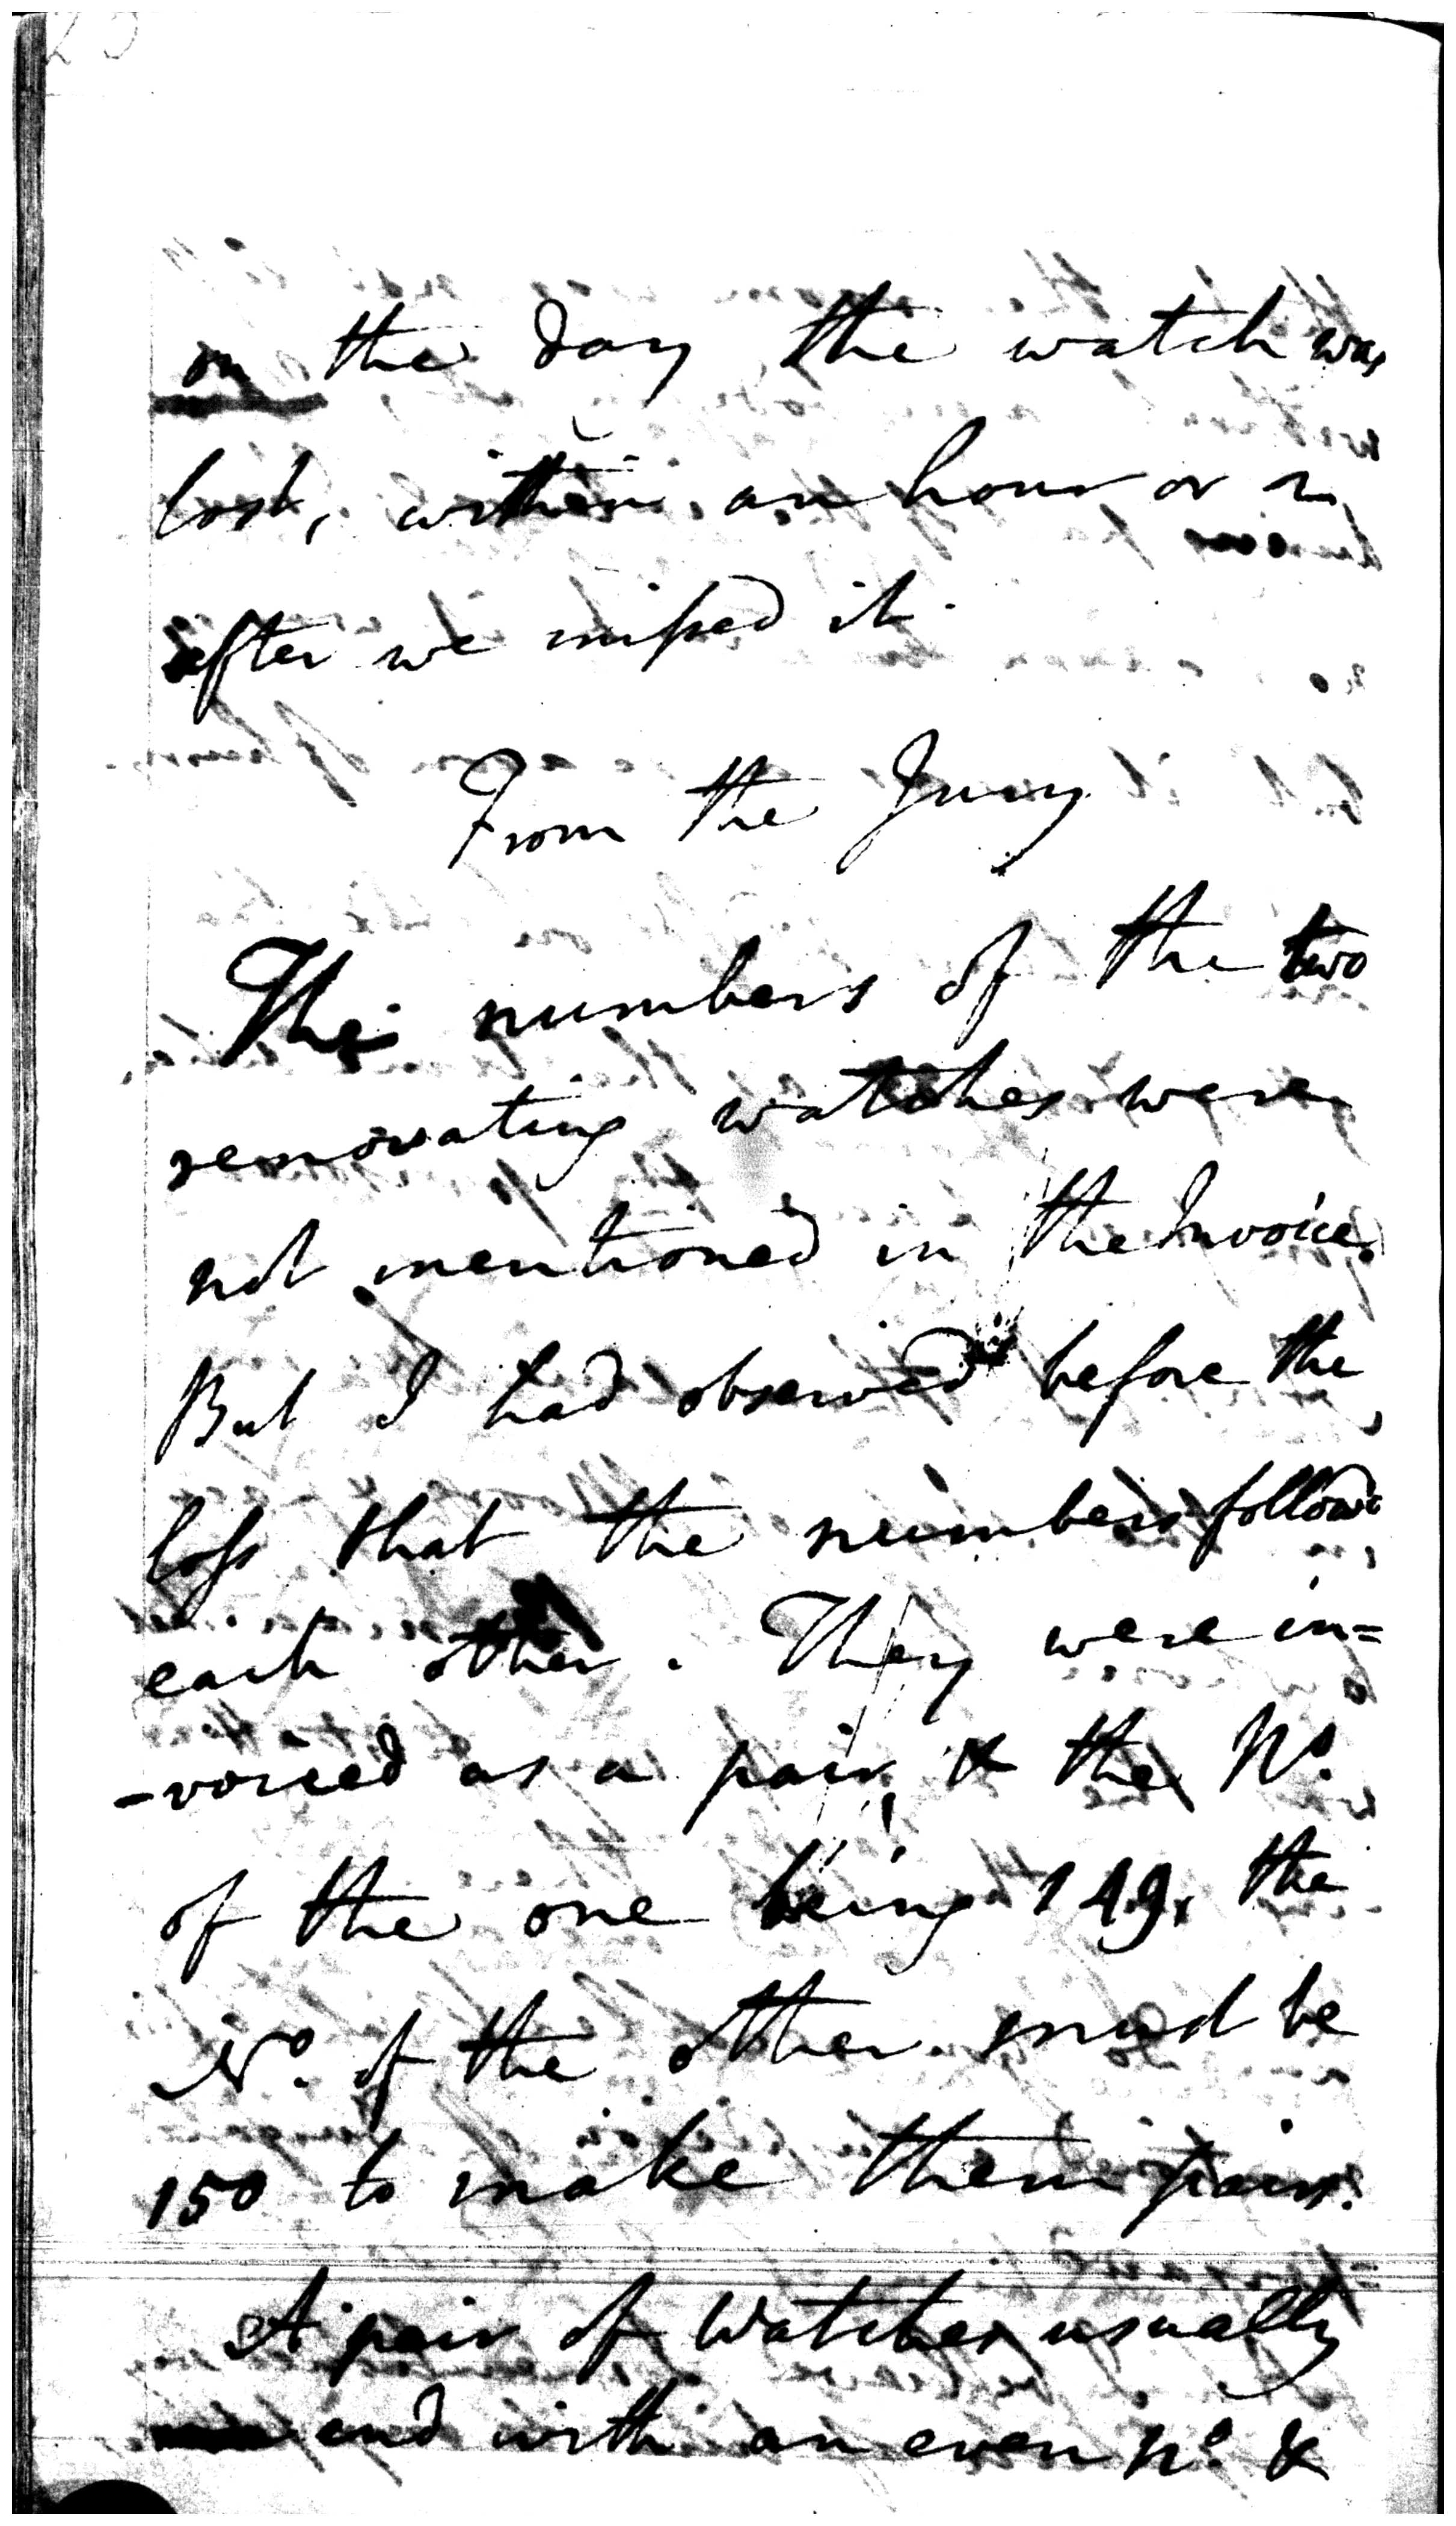 on the day the watch was
lost, within an hour or 2
after we missed it.
From the Jury
The numbers of the two
renovating watches were
not mentioned in the Invoice.
But I had observed before the
loss that the numbers follow'd
each other. They were in=
-voiced as a pair, & the No.
of the one being 149, the
No. of the other must be
150 to make them pairs.
A pair of Watches usually
end with an even No. &